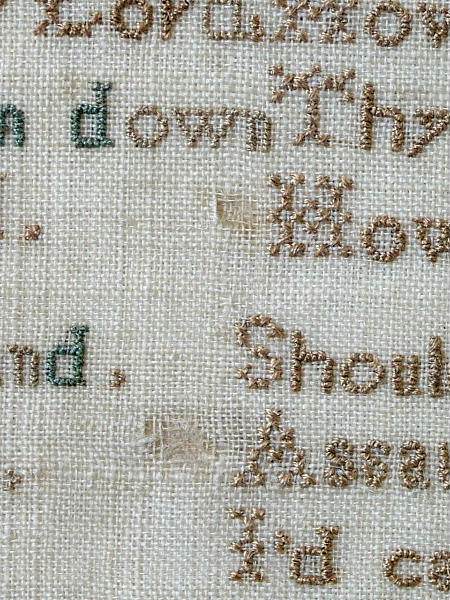 Lord How
n down Thy
. How
nd, Shoul
Assau
I'd ca